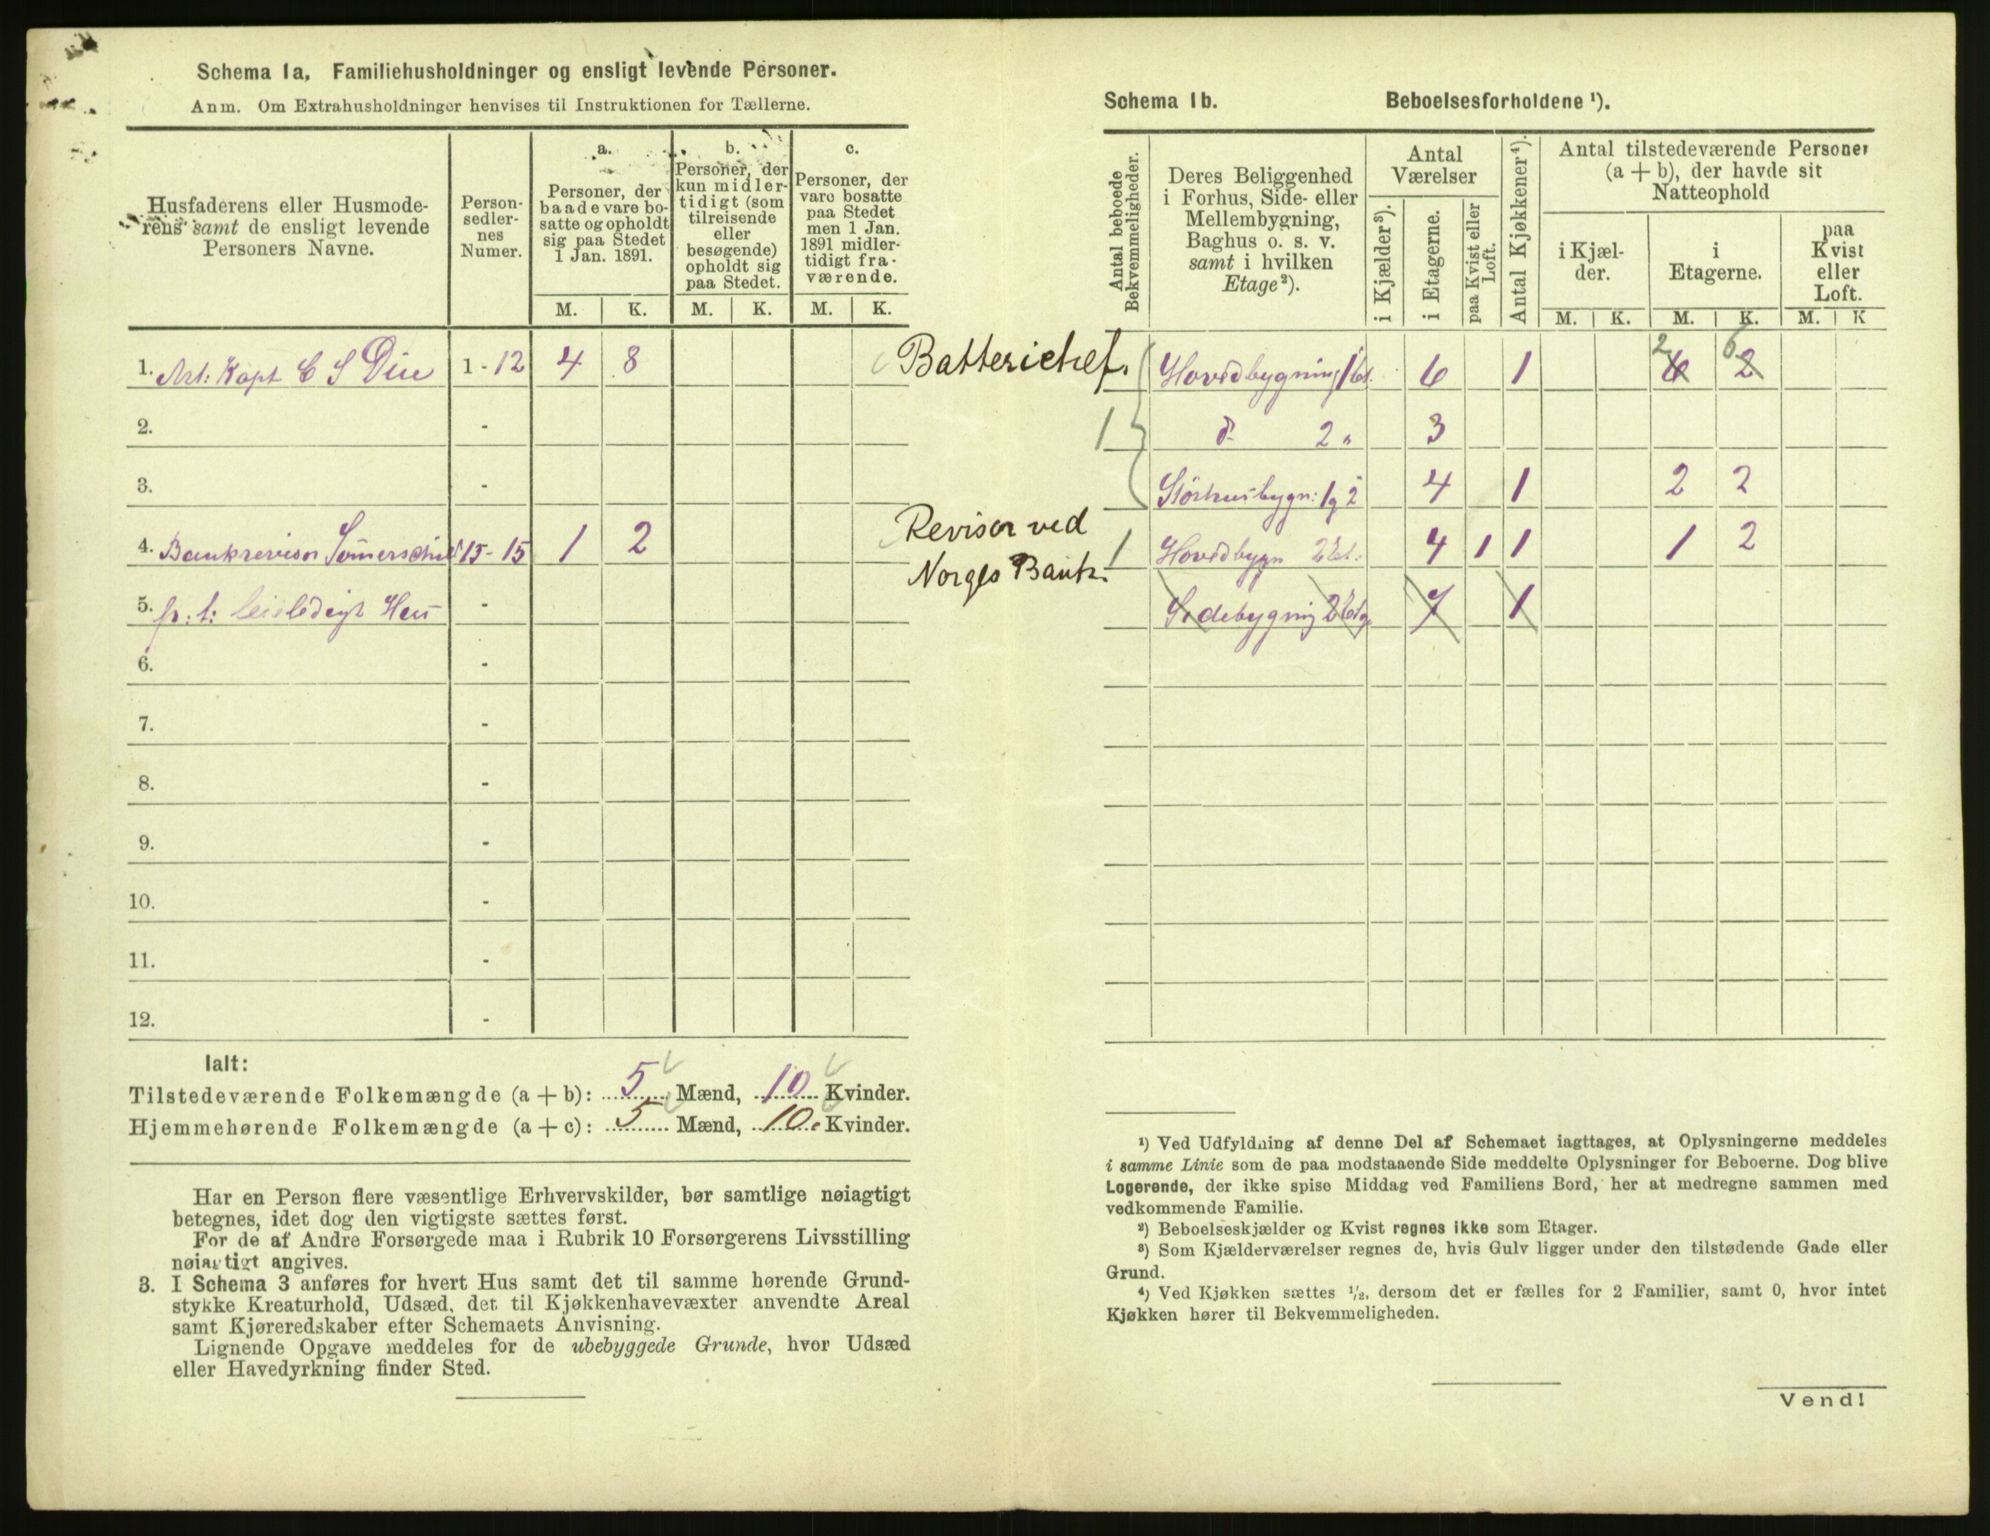 Schema 1a, Familiehusholdninger og ensligt levende Personer.
Anm. Om Extrahusholdninger henvises til Instruktionen for Tællerne.
Husfaderens eller Husmode-
rens samt de ensligt levende
Personers Navne.
Person-
sedler-
nes
Numer.
a.
Personer, der
baade vare bo-
satte og opholdt
sig paa Stedet
1 Jan. 1891.
b.
Personer, der
kun midler-
tidigt (som
tilreisende
eller
besøgende)
opholdt sig
paa Stedet.
c.
Personer, der
vare bosatte
paa Stedet
men 1 Jan.
1891 midler-
tidigt fra-
værende.
M. K. M. K. M. K.
1. Art: Kapt C S Due 1 - 12 4 8
2. -
3. -
4. Bankrevisor Sømerschild 13 - 15 1 2
5. p. t: Hus -
6. -
7. -
8. -
9. -
10. -
11. -
12. -
Batterichef.
Revisor ved
Norges Bank.
Ialt:
Tilstedeværende Folkemængde (a + b): 5 Mænd, 10 Kvinder.
Hjemmehørende Folkemængde (a + c): 5 Mænd, 10 Kvinder.
Har en Person flere væsentlige Erhvervskilder, bør samtlige nøiagtigt
betegnes, idet dog den vigtigste sættes først.
For de af Andre Forsørgede maa i Rubrik 10 Forsørgerens Livsstilling
nøiagtigt angives.
3. I Schema 3 anføres for hvert Hus samt det til samme hørende Grund-
stykke Kreaturhold, Udsæd, det til Kjøkkenhavevæxter anvendte Areal
samt Kjøreredskaber efter Schemaets Anvisning.
Lignende Opgave meddeles for de ubebyggede Grunde, hvor Udsæd
eller Havedyrkning finder Sted.
Schema 1b. Beboelsesforholdene ¹).
Antal beboede
Bekvemmeligheder.
Deres Beliggenhed
i Forhus, Side- eller
Mellembygning,
Baghus o. s. v.
samt i hvilken
Etage²).
Antal
Værelser
i Kjælder³).
i Etagerne.
paa Kvist eller
Loft.
Antal Kjøkkener⁴).
Antal tilstedeværende Personer
(a + b), der havde sit
Natteophold
i Kjæl-
der.
i
Etagerne.
paa
Kvist
eller
Loft.
M. K. M. K. M. K
Hovedbygning 1 et. 6 1 2 6 6 2
1 d 2 " 3
Størhusbygn: 1 og 2 4 1 2 2
1 Hovedbygn 2 et: 4 1 1 1 2
Sidebygning 2 etg. 7 1
¹) Ved Udfyldning af denne Del af Schemaet iagttages, at Oplysningerne meddeles
i samme Linie som de paa modstaaende Side meddelte Oplysninger for Beboerne. Dog blive
Logerende, der ikke spise Middag ved Familiens Bord, her at medregne sammen med
vedkommende Familie.
²) Beboelseskjælder og Kvist regnes ikke som Etager.
³) Som Kjælderværelser regnes de, hvis Gulv ligger under den tilstødende Gade eller
Grund.
⁴) Ved Kjøkken sættes ½, dersom det er fælles for 2 Familier, samt 0, hvor intet
Kjøkken hører til Bekvemmeligheden.
Vend!